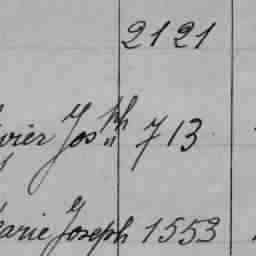 2121
vier Josph 713
arie Joseph 1553